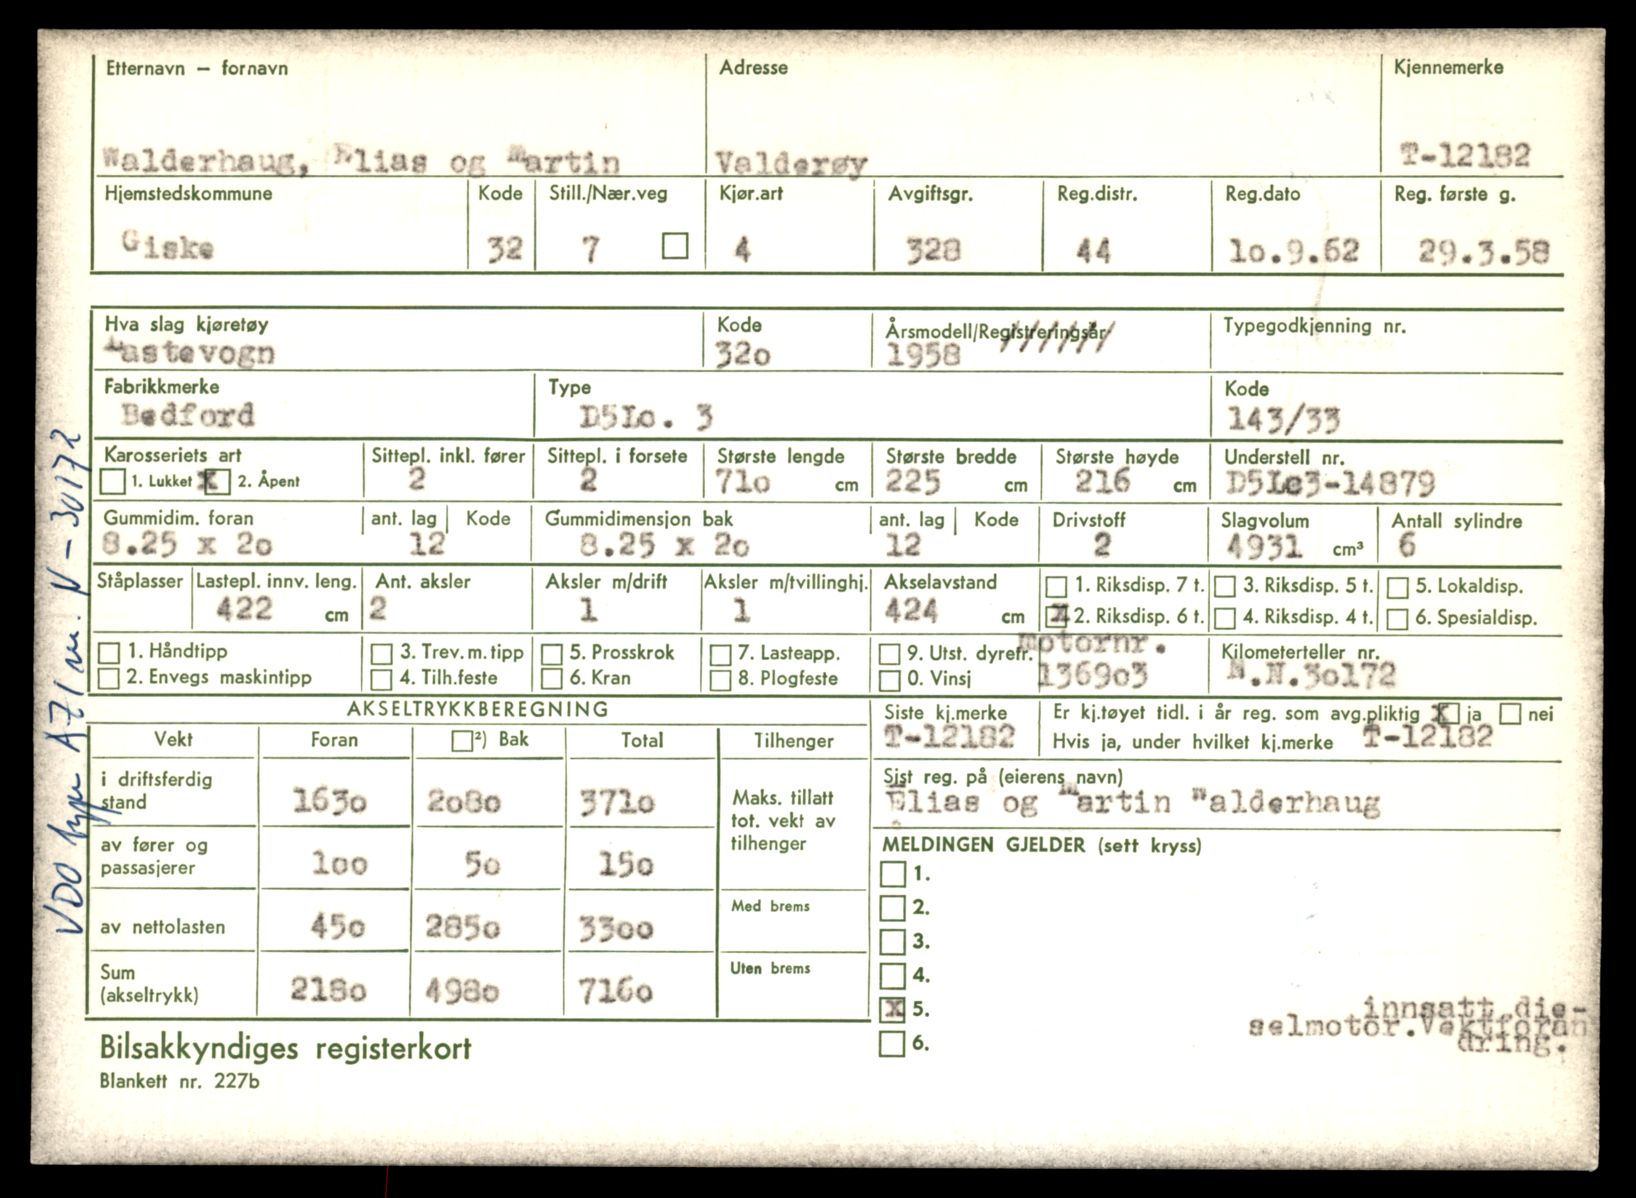 Etternavn — fornavn Adresse Kjennemerke
Walderhaug, Elias og Martin Valderøy T-12182
Hjemstedskommune Kode Still./Nær.veg Kjør.art Avgiftsgr. Reg.distr. Reg.dato Reg. første g.
Giske 32 7 4 328 44 lo.9.62 29.3.58
Hva slag kjøretøy Kode Årsmodell/Registreringsår Typegodkjenning nr.
Lastevogn 32o 1958 //////
Fabrikkmerke Type Kode
Bedford D5Lc. 3 143/33
Karosseriets art Sittepl. inkl. fører Sittepl. i forsete Største lengde Største bredde Største høyde Understell nr.
1. Lukket X 2. Åpent 2 2 71o cm 225 cm 216 cm D5Lc3-14879
Gummidim. foran ant. lag Kode Gummidimensjon bak ant. lag Kode Drivstoff Slagvolum Antall sylindre
8.25 x 2o 12 8.25 x 2o 12 2 4931 cm³ 6
Ståplasser Lastepl. innv. leng. Ant. aksler Aksler m/drift Aksler m/tvillinghj. Akselavstand 1. Riksdisp. 7 t. 3. Riksdisp. 5 t. 5. Lokaldisp.
422 cm 2 1 1 424 cm X 2. Riksdisp. 6 t. 4. Riksdisp. 4 t. 6. Spesialdisp.
1. Håndtipp 3. Trev. m. tipp 5. Prosskrok 7. Lasteapp. 9. Utst. dyrefr. motornr. Kilometerteller nr.
2. Envegs maskintipp 4. Tilh.feste 6. Kran 8. Plogfeste 0. Vinsj 1369o3 N.N.3o172
AKSELTRYKKBEREGNING Siste kj.merke Er kj.tøyet tidl. i år reg. som avg.pliktig X ja nei
Vekt Foran ²) Bak Total Tilhenger T-12182 Hvis ja, under hvilket kj.merke T-12182
i driftsferdig stand 163o 2o8o 371o Maks. tillatt tot. vekt av tilhenger
Sist reg. på (eierens navn)
Elias og Martin Walderhaug
av fører og passasjerer 1oo 5o 15o
MELDINGEN GJELDER (sett kryss)
1.
2.
av nettolasten 45o 285o 33oo Med brems
3.
Sum (akseltrykk) 218o 498o 716o Uten brems
4.
X 5. innsatt die-
selmotor.Vektforan
dring.
6.
Bilsakkyndiges registerkort
Blankett nr. 227b
VDO type A71 nr. N-30172